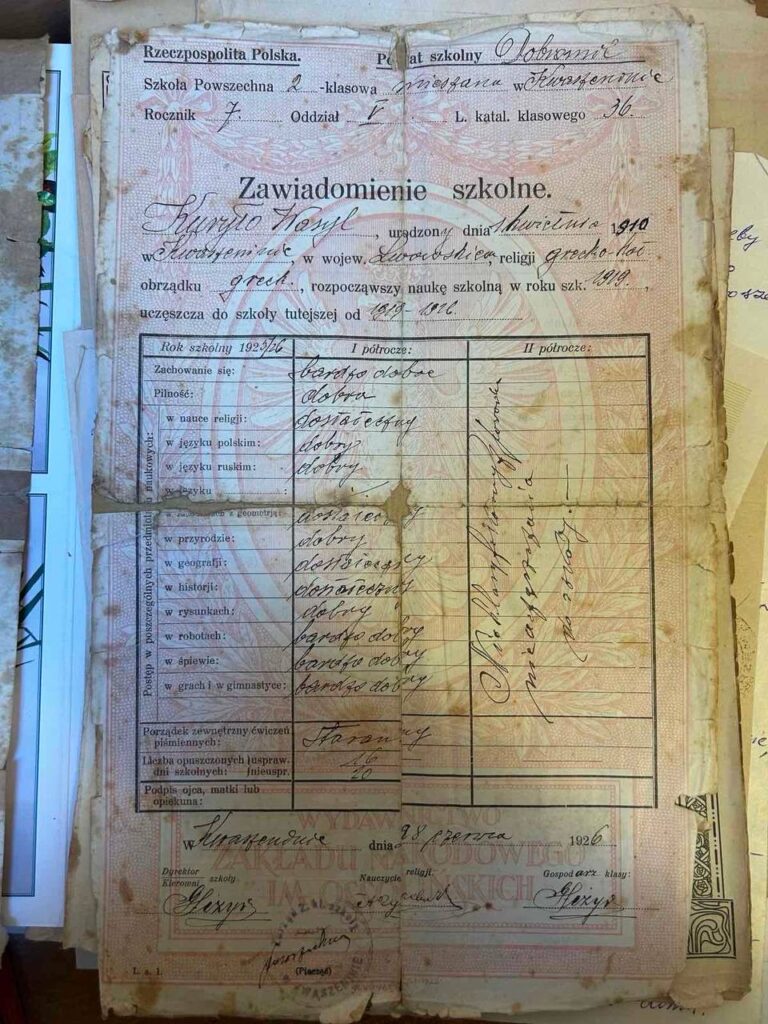 Rzeczpospolita Polska. Powiat szkolny Dobromil
Szkoła Powszechna 2 -klasowa mieszana w Kwaszeninie
Rocznik 7. Oddział V L. katal. klasowego 36.
Zawiadomienie szkolne.
Kuryło Wasyl, urodzony dnia 1 kwietnia 1910
w Kwaszeninie, w wojew. Lwowskiem, religji grecko-kat.
obrządku greck., rozpocząwszy naukę szkolną w roku szk. 1919,
uczęszcza do szkoły tutejszej od 1919-1926.
Rok szkolny 1925/26 I półrocze: II półrocze:
Zachowanie się: bardzo dobre
Pilność: dobra
Postęp w poszczególnych przedmiotach naukowych:
w nauce religji: dostateczny
w języku polskim: dobry
w języku ruskim: dobry
w języku
z geometrją: dostateczny
w przyrodzie: dobry
w geografji: dostateczny
w historji: dostateczny
w rysunkach: dobry
w robotach: bardzo dobry
w śpiewie: bardzo dobry
w grach i w gimnastyce: bardzo dobry
Nieklasyfikowany z powodu
nieuczęszczania
do szkoły.—
Porządek zewnętrzny ćwiczeń
piśmiennych: Staranny
Liczba opuszczonych uspraw. 16
dni szkolnych: nieuspr. 20
Podpis ojca, matki lub
opiekuna:
WYDAWNICTWO
ZAKŁADU NARODOWEGO
IM. OSSOLIŃSKICH
W Kwaszeninie dnia 28 czerwca 1926
Dyrektor
Kierowni szkoły Nauczyciel religji: Gospodarz klasy:
L. s. 1. (Pieczęć)